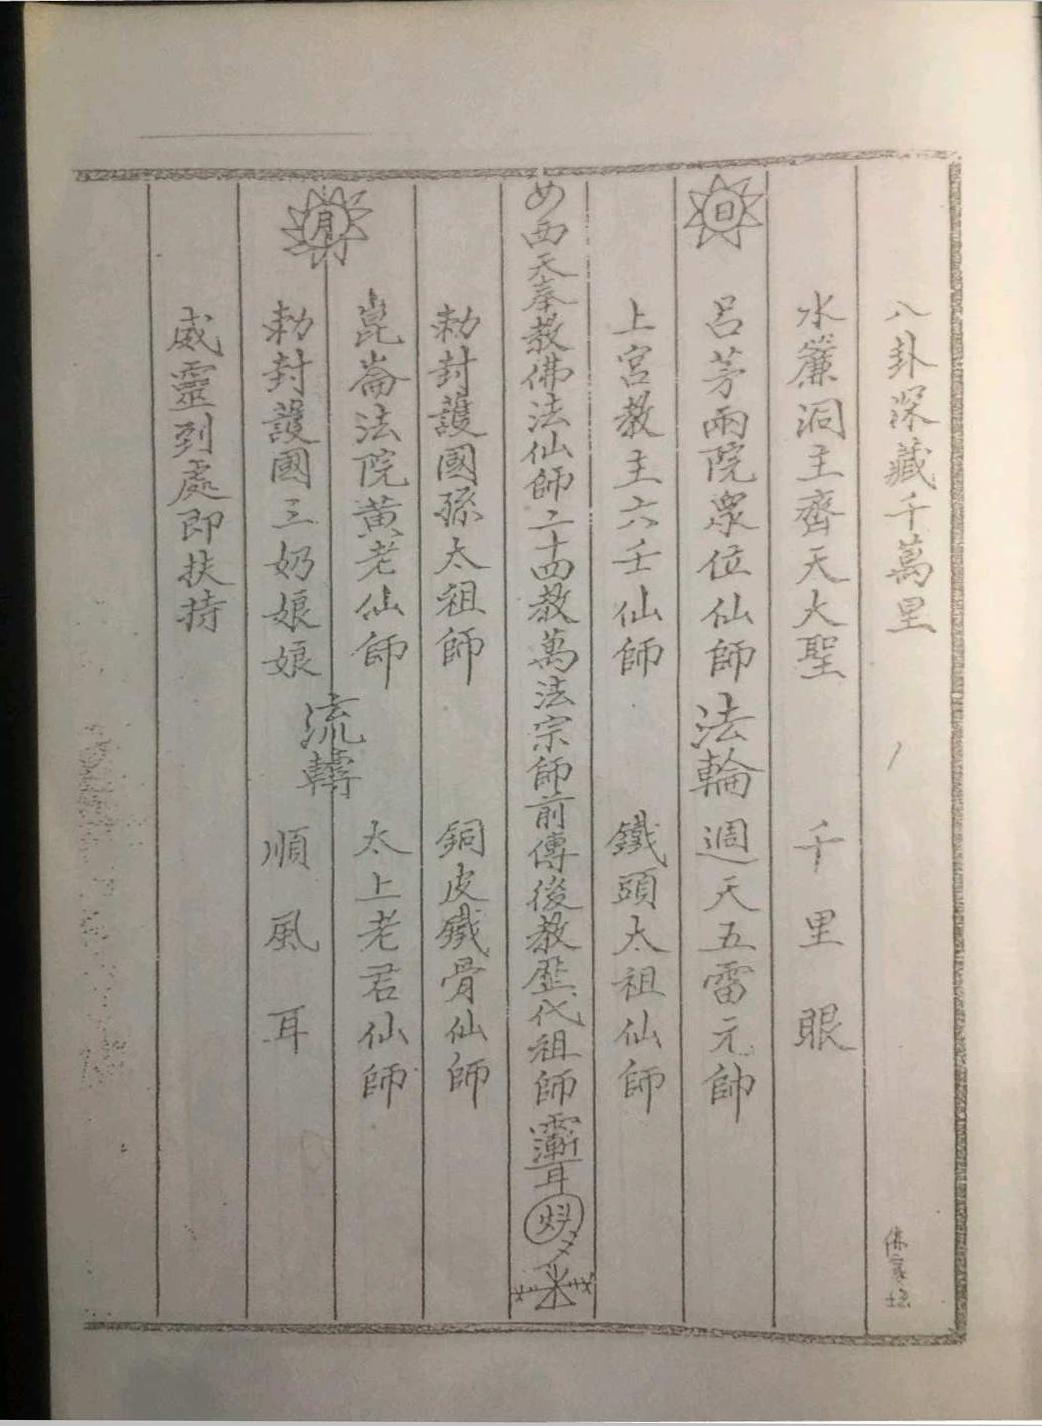 八卦深藏千萬里
水簾洞王齊天大聖 千里眼
日
呂茅兩院眾位仙師 法輪 週天五雷元帥
上宮教主六壬仙師 鐵頭太祖仙師
西天奉教佛法仙師二十四教萬法宗師前傳後教歷代祖師
勅封護國孫太祖師 銅皮鐵骨仙師
崑崙法院黃老仙師 太上老君仙師
月
流轉
勅封護國三奶娘娘 順風耳
威靈到處即扶持